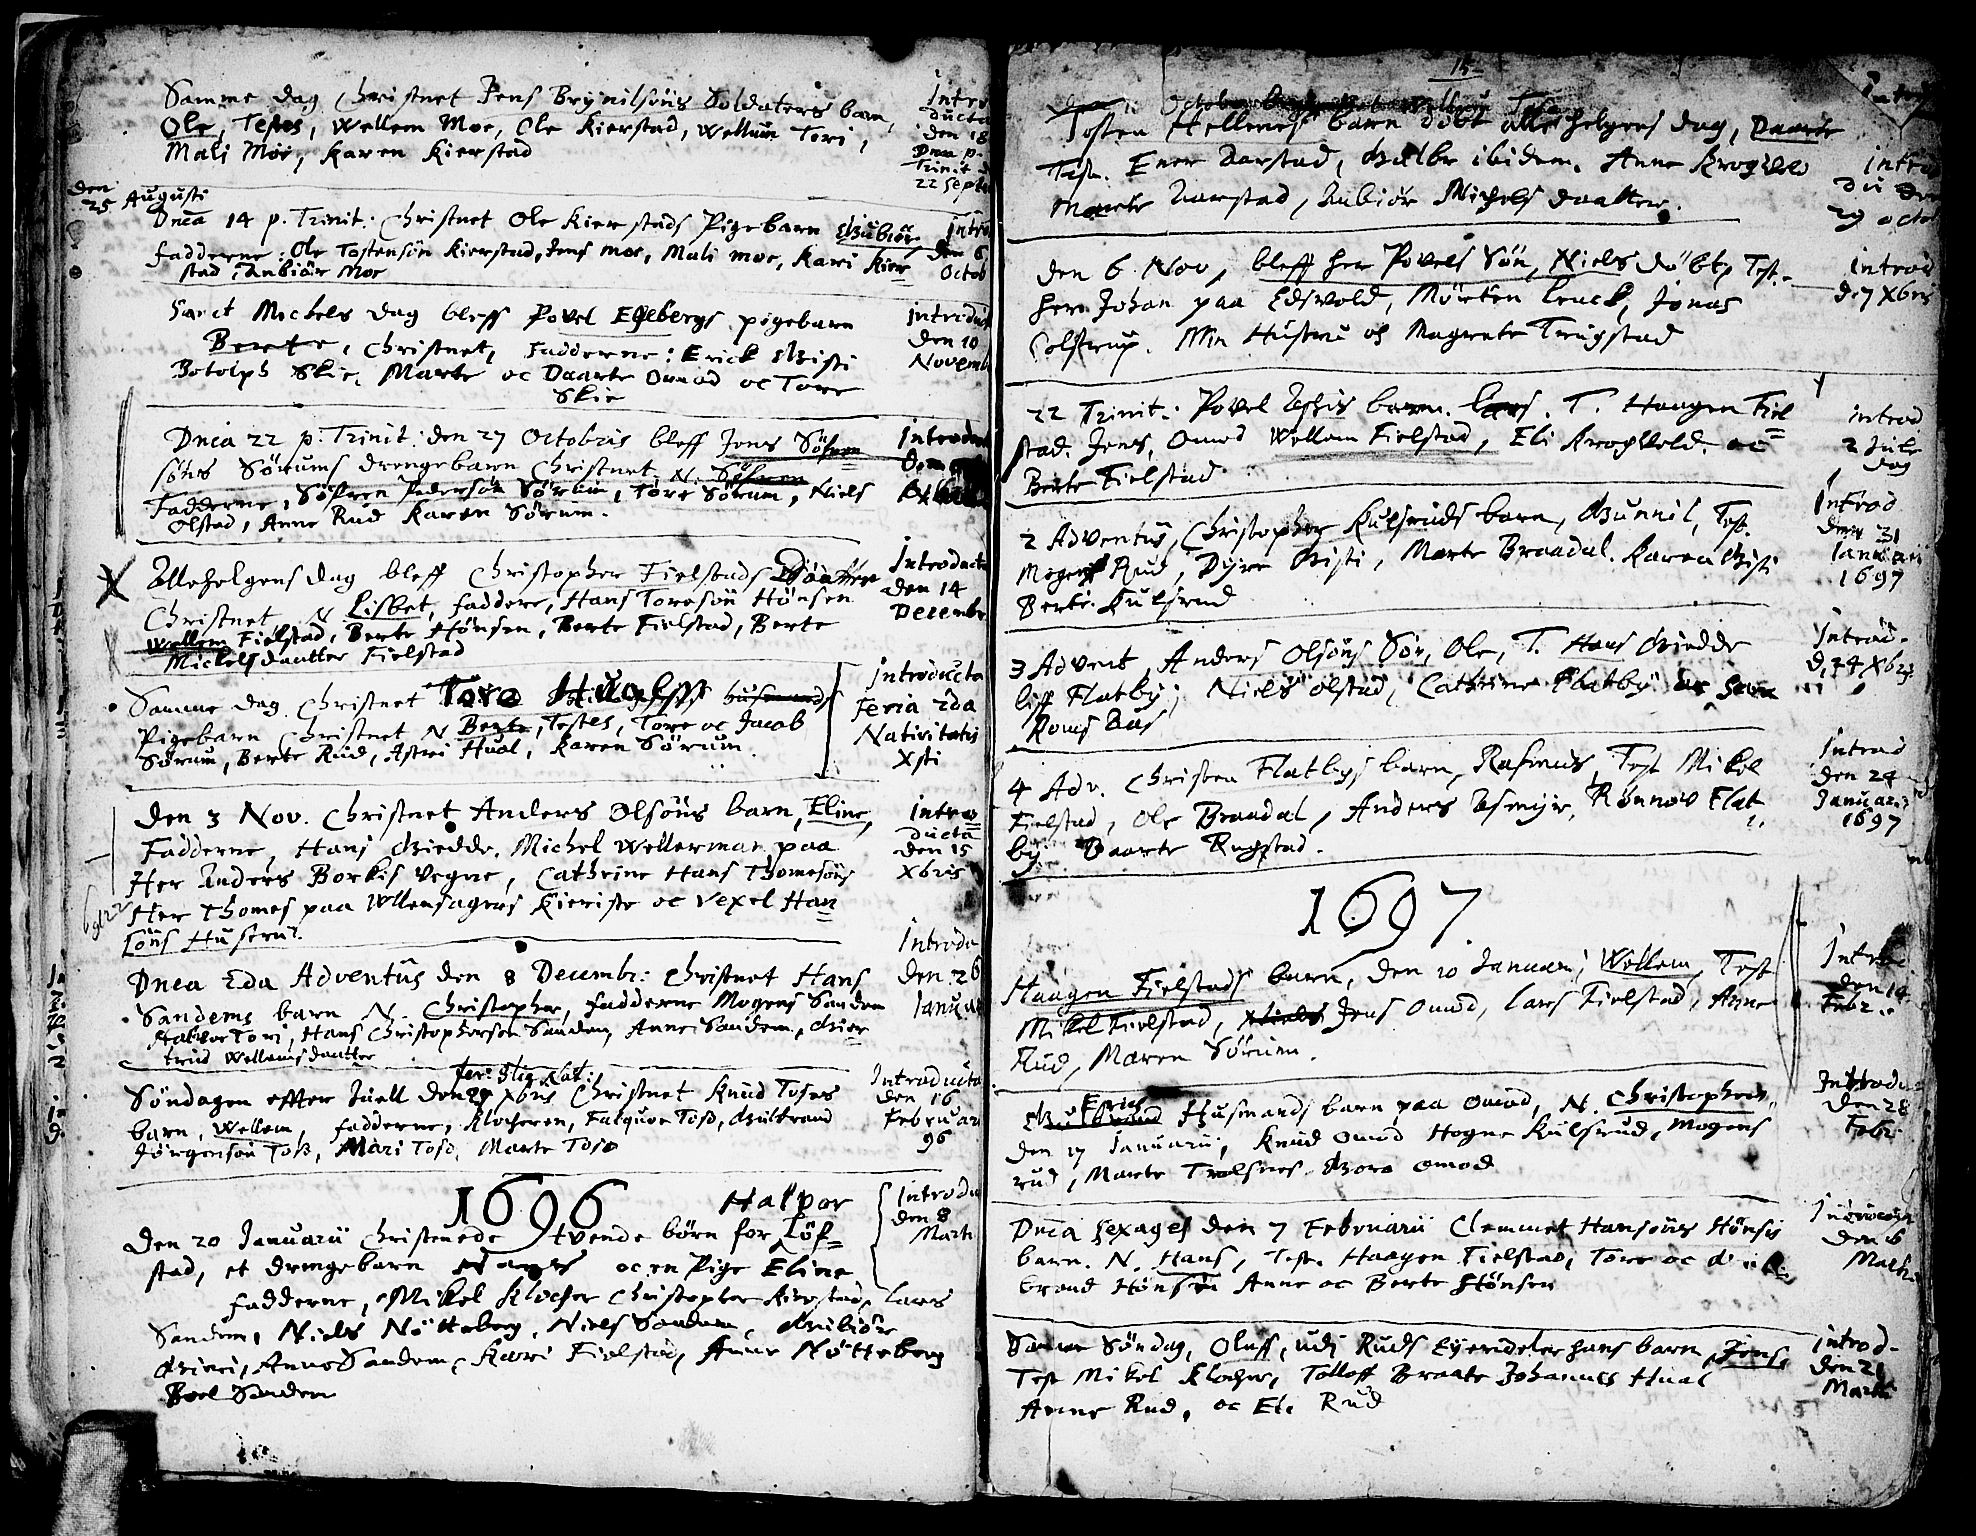 Samme dag Christnet Jens Brynilsöns Soldaters barn,
Ole, Testes, Wellem Moe, Ole Kierstad, Wellum Tori,
Mali Moe, Karen Kierstad
Intro
ducta
den 18
Dnca p.
Trinit
22 Septe
den
25 Augusti
Dnca 14 p. Trinit: Christnet Ole Kierstads Pigebarn Gubiör
fadderne: Ole Tostensön Kierstad, Jens moe, Mali moe, Kari Kier=
stad, Anbiör Moe
Intro
den 6
Octob
Sanct Michels dag bleff Povel Egebergs pigebarn
Berte, Christnet, Fadderne: Erick Gristi
Botolph Skie, Marte oc Daarte Omod oc Tore
Skie
Introdu
den 10
Novemb
Dnca 22 p. Trinit: den 27 Octobris bleff Jens Söfren
söns Sörums drengebarn Christnet N. Söfren
Fadderne, Söfren Pedersön Sörum, Tore Sörum, Niels
Olstad, Anne Rud Karen Sörum.
Introdu
Allehelgens dag bleff Christopher Fielstads Daatter
Christnet N Lisbet, faddere, Hans Toresön Hönsen
Wellem Fielstad, Berte Hönsen, Berte Fielstad, Berte
Mickelsdaatter Fielstad
Introducta
den 14
Decembr
Samme dag Christnet Tore Hualss husmands
Pigebarn Christnet N Berte, Testes, Tore oc Jacob
Sörum, Berte Rud, Astri Hual, Karen Sörum.
Introducta
Feria 2da
Nativitatis
Xsti
Den 3 Nov. Christnet Anders Olsöns barn, Eline,
Fadderne, Hans Giedde, Michel Wellerman paa
Her Anders Borkis vegne, Cathrine Hans Thomesöns
Her Thomes paa Ullensagers Kieriste oc Vexel Han=
söns Hustru.
Intro=
ducta
den 15
Xbris
Dnca 2da Adventus den 8 Decembr: Christnet Hans
Sandems barn N. Christopher, fadderne Mogens Sandem
Halvor Tori, Hans Christophersen Sandem, Anne Sandem, Gier
trud Wellemsdaatter
Introdu
den 26
Janua
fer: 3tia Nat:
Söndagen effter Juell den 29 Xbris Christnet Knud Toses
barn, Wellem, fadderne, Klocheren, Falquor Tosd, Gulbrand
Jörgensön Toss, Mari Tosd, Marte Tosd
Introducta
den 16
Februar
96
1696
Halvor
Den 20 Januarii Christnede tvende börn for Löf=
stad, et drengebarn oc en Pige Eline
fadderne, Mikel Klocher Christopher Kierstad, Lars
Sandem, Niels Nötteberg, Niels Sandem, Gubiöre
Gieri, Anne Sandem, Kari Fielstad, Anne Nötteberg
Boel Sandem
Introdu
den 8
Marti
15
Tosten Hellenes barn döbt alle helgens dag, Daarte
Test. Ener Aarstad, Gulbr ibidem. Anne Krogveld
Marte Aarstad, Aubiör Michels daatter.
introd
29 octob
den 6 Nov, bleff her Povels Sön, Niels döbt, Test.
her Johan paa Edsvold, Morten Leuck, Jonas
Colstrup. Min Hustru oc Magrete Trugstad
Introd
d. 7 Xbris
22 Trinit: Povel Ashis barn. Lars. T. Haagen Fiel
stad. Jens, Omod Wellem Fielstad, Eli Krogveld. oc
Berte Fielstad
introd
2 Jule
dag
2 Adventus, Christopher Kulsruds barn, Gunnil, Test.
Mogens Rud, Dyre Gristi, Marte Braadal. Karen Gristi
Berte Kulsrud
Introd
den 31
Januari
1697
3 Advent, Anders Olsöns Sön, Ole, T. Hans Giedde
Flatby, Niels Olstad, Cathrine Flatby
Introd.
d. 24 Xbris
4 Adv. Christen Flatbys barn, Rasmus, Test Mikel
Fielstad, Ole Braadal, Anders Asmyr, Rönnov Flat
by. Daarte Rugstad.
Introd
den 24
Januarii
1697
1697
Haagen Fielstads barn, den 10 Januarii Wellem, Test
Mikel Fielstad, Jens Omod, Lars Fielstad, Anne
Rud, Maren Sörum.
Intro
den 14
Febr.
Erics
Gulbrand Husmands barn paa Omod, N. Christopher,
den 17 Januarii, Knud Omod Hogne Kulsrud, Mogens
rud, Marte Trulsnes Boro Omod
Introdu=
den 28
Febr
Dnca Sexages den 7 Februarii Clemmet Hansöns Hönsis
barn. N. Hans, Test. Haagen Fielstad, Tore oc Gul
brand Hönsen Anne oc Berte Hönsen
Introd
den 6
Marti
Samme Söndag, Oluff, udi Ruds Eyeridelershans barn, Jens,
Test Mikel Klocher, Tolloff Braate Johannes Hual
Anne Rud, oc Eli Rud
Introd-
den 21
Marti